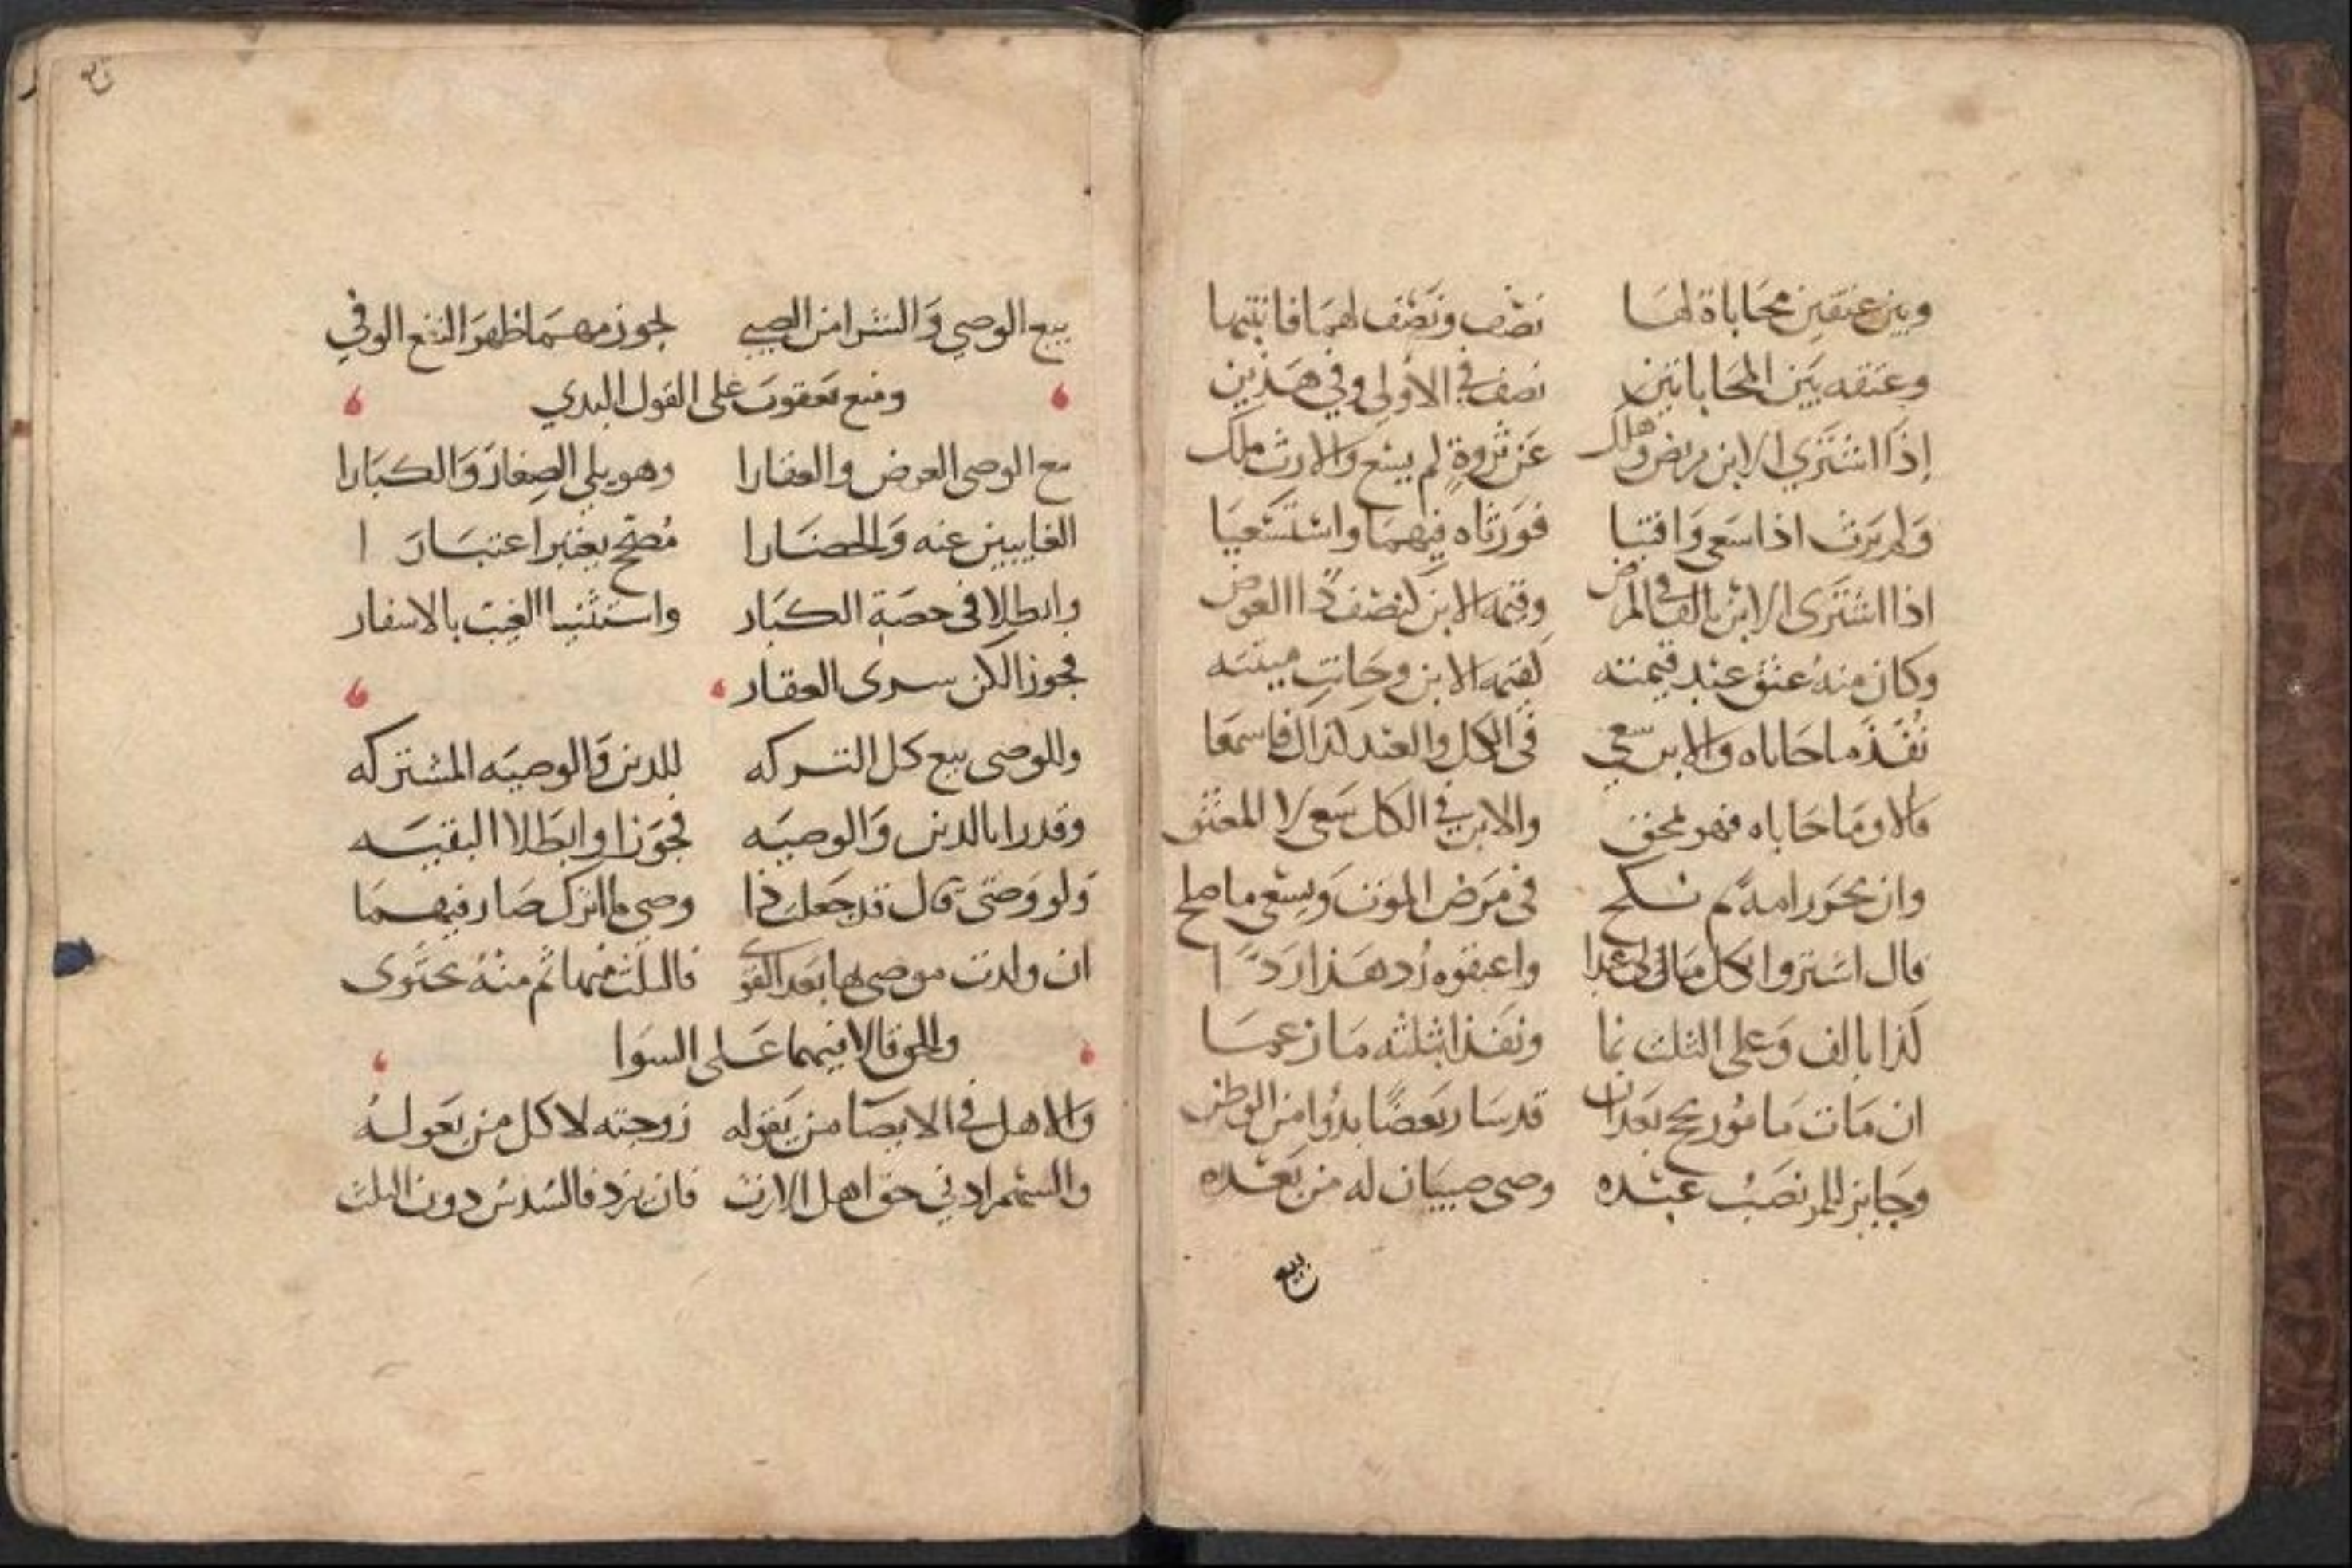 وبين عتقين محاباة لها نصف ونصف لهما فانتبها
وعتقه بين المحاباتين نصف في الاولى وفي هذين
إذا اشترى الابن مريض وهلك عن ثروة لم يسع والارث ملك
ولم يرث اذا سعى وافتيا فورثاه فيهما واستسعيا
اذا اشترى الابن بالف في المرض وقيمة الابن لنصف ذا العوض
وكان منه عتق عبد قيمته كقيمة الابن وحانت ميتته
نفذ ما حاباه والابن سعى في الكل والعبد لذاك فاسمعا
قالا وما حاباه فهو محق والابن في الكل سعى لا المعتق
وان يحرر امة ثم نكح في مرض الموت ويسعى ما صلح
قال اشتروا بكل مالي عبدا واعتقوه رد هذا ردا
كذا بالف وعلى الثلث نما ونفذا بثلثه ما زعما
ان مات مامور بحج بعد ان قد سار بعضا بدؤا من الوطن
وجايز للمر نصب عبده وصي صبيان له من بعده
بيع
بيع الوصي والشرا من الصبي يجوز مهما ظهر النفع الوفي
ومنع يعقوب على القول البدي
مع الوصي العرض والعقارا وهو يلي الصغار والكبارا
الغايبين عنه والحضارا مصحح يعتبر اعتبارا
وابطلا في حصة الكبار واستثنيا الغيب بالاسفار
فجوزا لكن سوى العقار
وللوصي بيع كل التركه للدين والوصيه المشتركه
وقدرا بالدين والوصيه فجوزا وابطلا البقيه
ولو وصي قال قد جعلت ذا وصي ما اترك صار فيهما
ان ولدت موصى بها بعد التوى فالثلث منها ثم منه يحتوى
والحق قالا فيهما على السوا
والاهل في الايصا من يقوله زوجته لا كل من يعوله
والسهم ادني حق اهل الارث فان يزد فالسدس دون الثلث